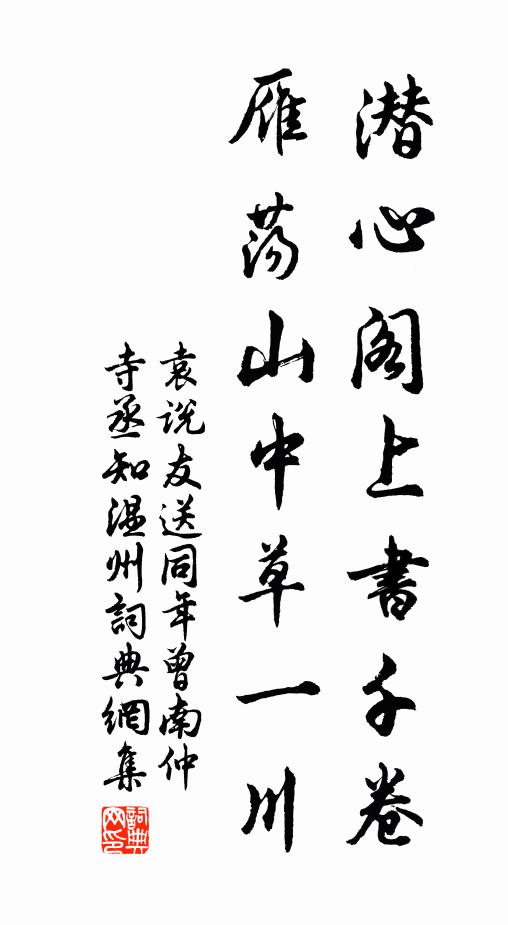 潜心阁上書千卷
雁荡山中草一川
袁说友送同年曾南仲
寺丞知温州詞典網集
詞典网印